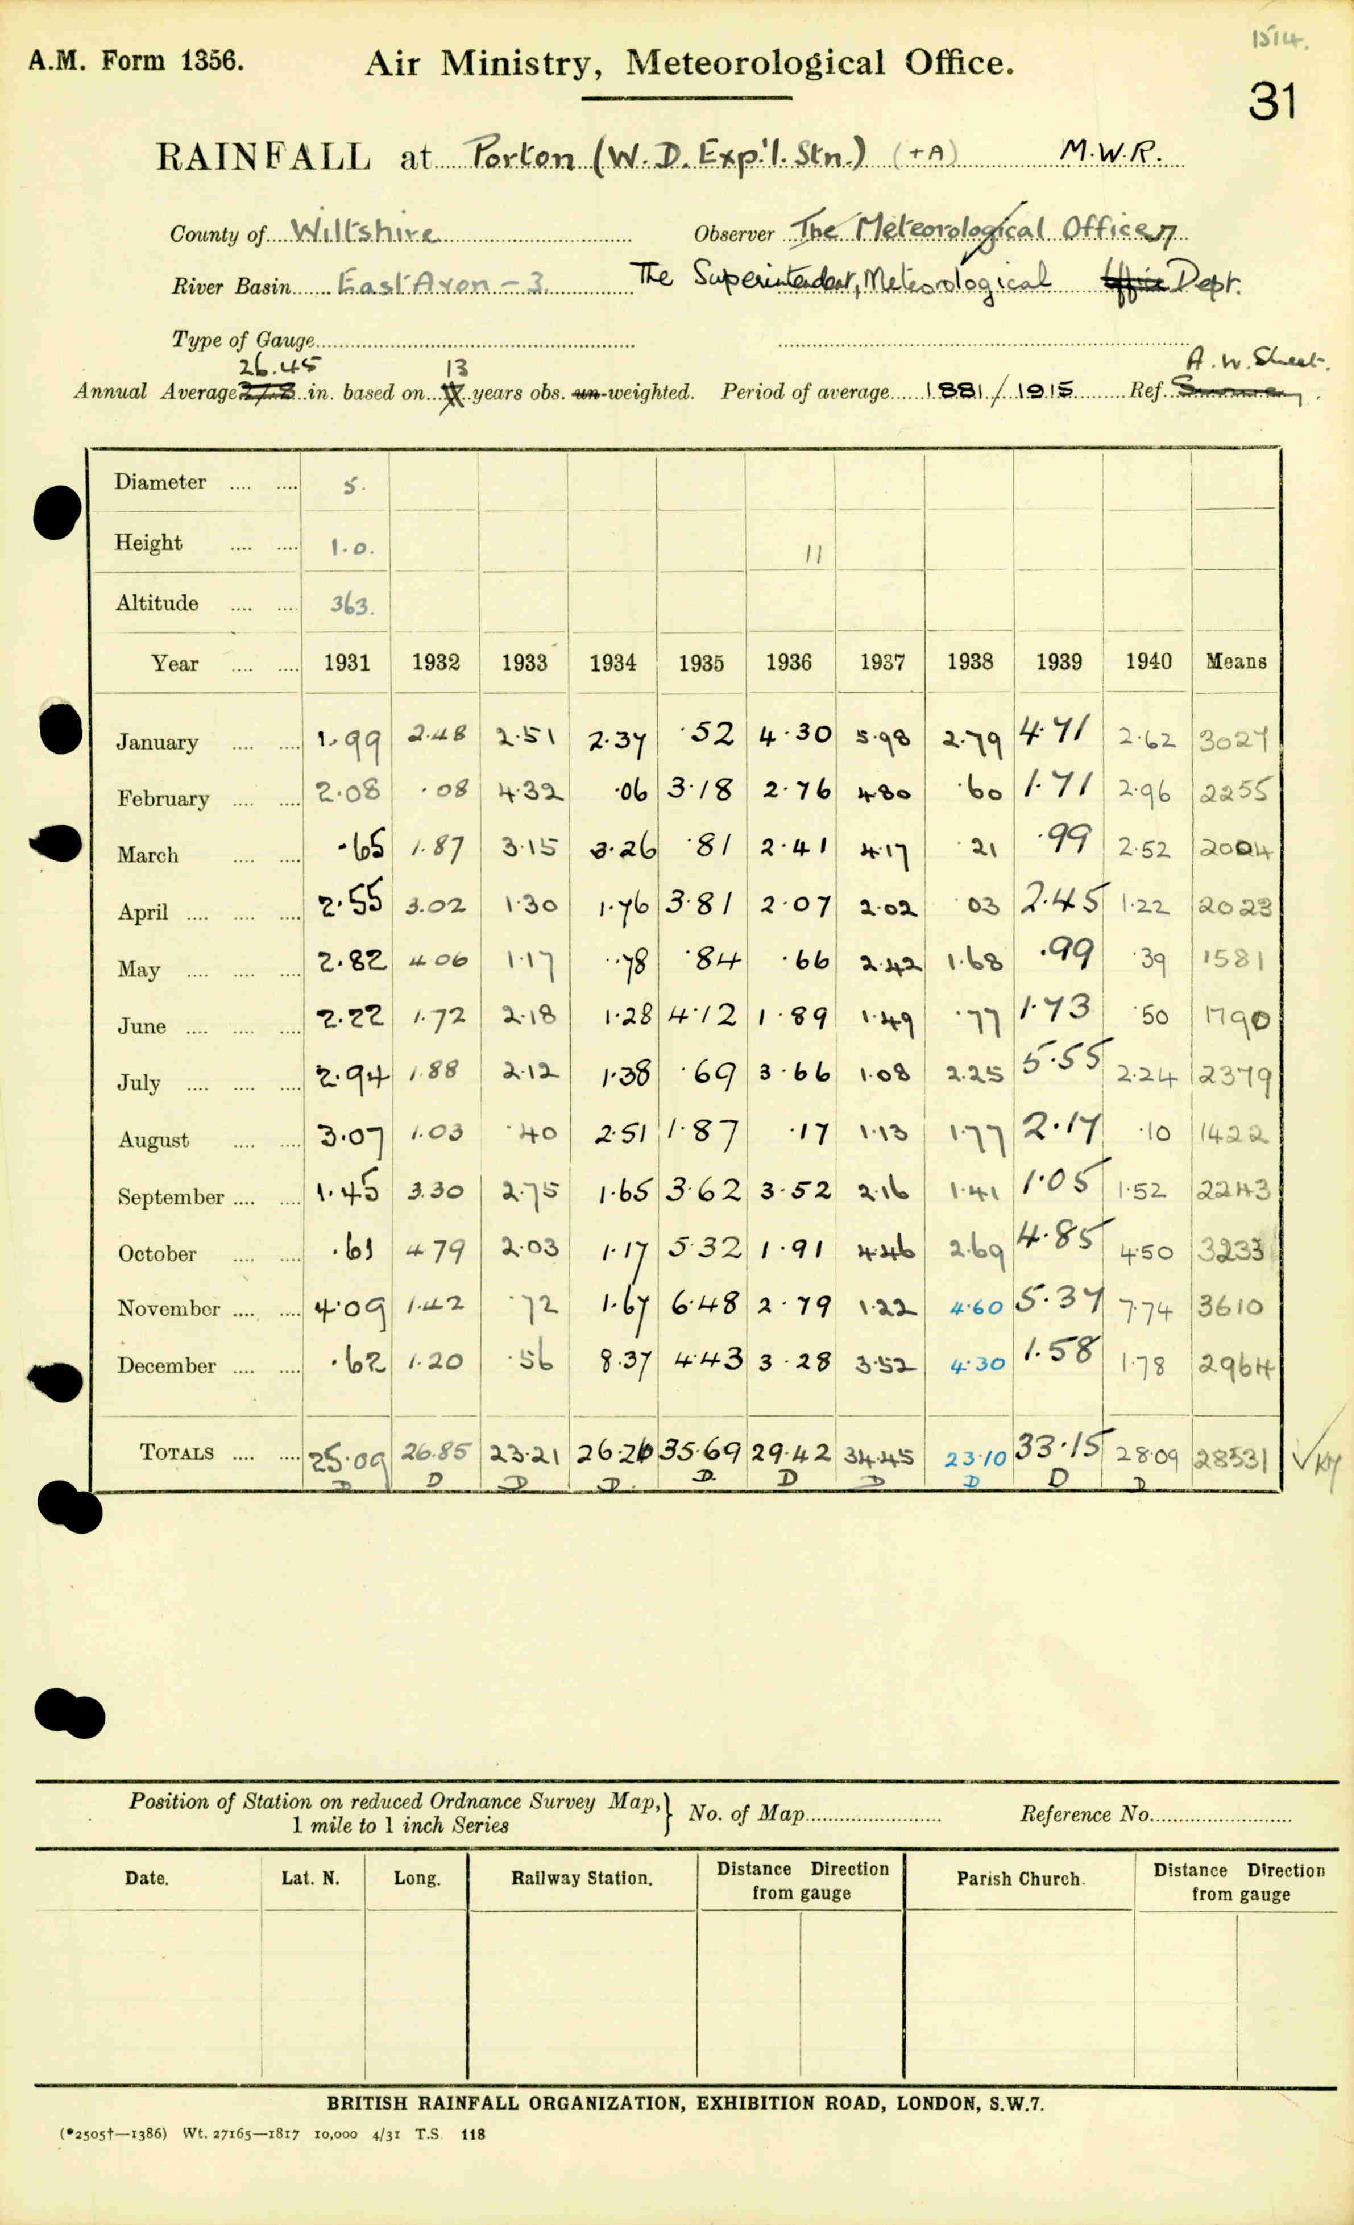 1514.
A.M. Form 1356. Air Ministry, Meteorological Office.
31
RAINFALL at Porton (W.D. Exp'l. Stn.) (+A) M.W.R.
County of Wiltshire Observer The Meteorological Officer
River Basin East Avon - 3. The Superintendent, Meteorological Office Dept.
Type of Gauge
26.45 13 A.W. Sheet.
Annual Average 27.8 in. based on years obs. un-weighted. Period of average 1881/1915 Ref.
Diameter 5.
Height 1.0. 11
Altitude 363.
Year 1931 1932 1933 1934 1935 1936 1937 1938 1939 1940 Means
January 1.99 2.48 2.51 2.37 .52 4.30 5.98 2.79 4.71 2.62 3027
February 2.08 .08 4.32 .06 3.18 2.76 4.80 .60 1.71 2.96 2255
March .65 1.87 3.15 3.26 .81 2.41 4.17 .21 .99 2.52 2004
April 2.55 3.02 1.30 1.76 3.81 2.07 2.02 .03 2.45 1.22 2023
May 2.82 4.06 1.17 .78 .84 .66 2.42 1.68 .99 .39 1581
June 2.22 1.72 2.18 1.28 4.12 1.89 1.49 .77 1.73 .50 1790
July 2.94 1.88 2.12 1.38 .69 3.66 1.08 2.25 5.55 2.24 2379
August 3.07 1.03 .40 2.51 1.87 .17 1.13 1.77 2.17 .10 1422
September 1.45 3.30 2.75 1.65 3.62 3.52 2.16 1.41 1.05 1.52 2243
October .61 4.79 2.03 1.17 5.32 1.91 4.46 2.69 4.85 4.50 3233
November 4.09 1.42 .72 1.67 6.48 2.79 1.22 4.60 5.37 7.74 3610
December .62 1.20 .56 8.37 4.43 3.28 3.52 4.30 1.58 1.78 2964
TOTALS 25.09 26.85 23.21 26.26 35.69 29.42 34.45 23.10 33.15 28.09 28531
D D D D. D D D D D D
Position of Station on reduced Ordnance Survey Map, 1 mile to 1 inch Series } No. of Map Reference No.
Date. Lat. N. Long. Railway Station. Distance Direction from gauge Parish Church. Distance Direction from gauge
BRITISH RAINFALL ORGANIZATION, EXHIBITION ROAD, LONDON, S.W.7.
(*2505†—1386) Wt. 27165—1817 10,000 4/31 T.S. 118